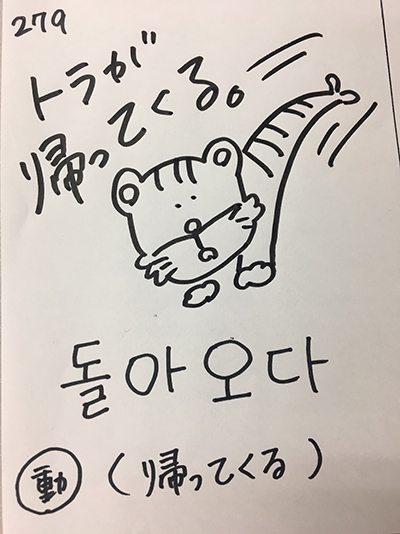 279
トラが
帰ってくる。
돌아오다
動 (帰ってくる)